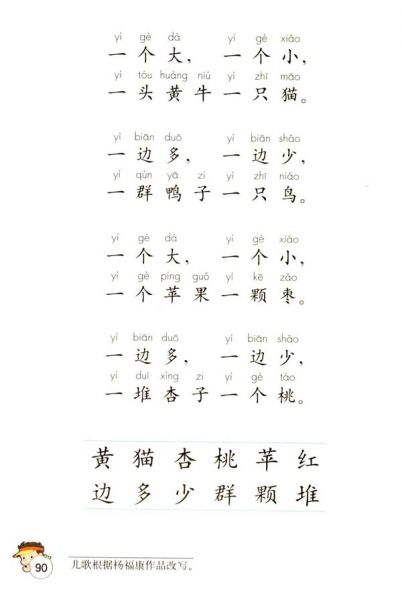 yí gè dà yí gè xiǎo
一个大，一个小，
yì tóu huáng niú yì zhī māo
一头黄牛一只猫。
yì biān duō yì biān shǎo
一边多，一边少，
yì qún yā zi yì zhī niǎo
一群鸭子一只鸟。
yí gè dà yí gè xiǎo
一个大，一个小，
yí gè píng guǒ yì kē zǎo
一个苹果一颗枣。
yì biān duō yì biān shǎo
一边多，一边少，
yì duī xìng zi yí gè táo
一堆杏子一个桃。
黄猫杏桃苹红
边多少群颗堆
90 儿歌根据杨福康作品改写。